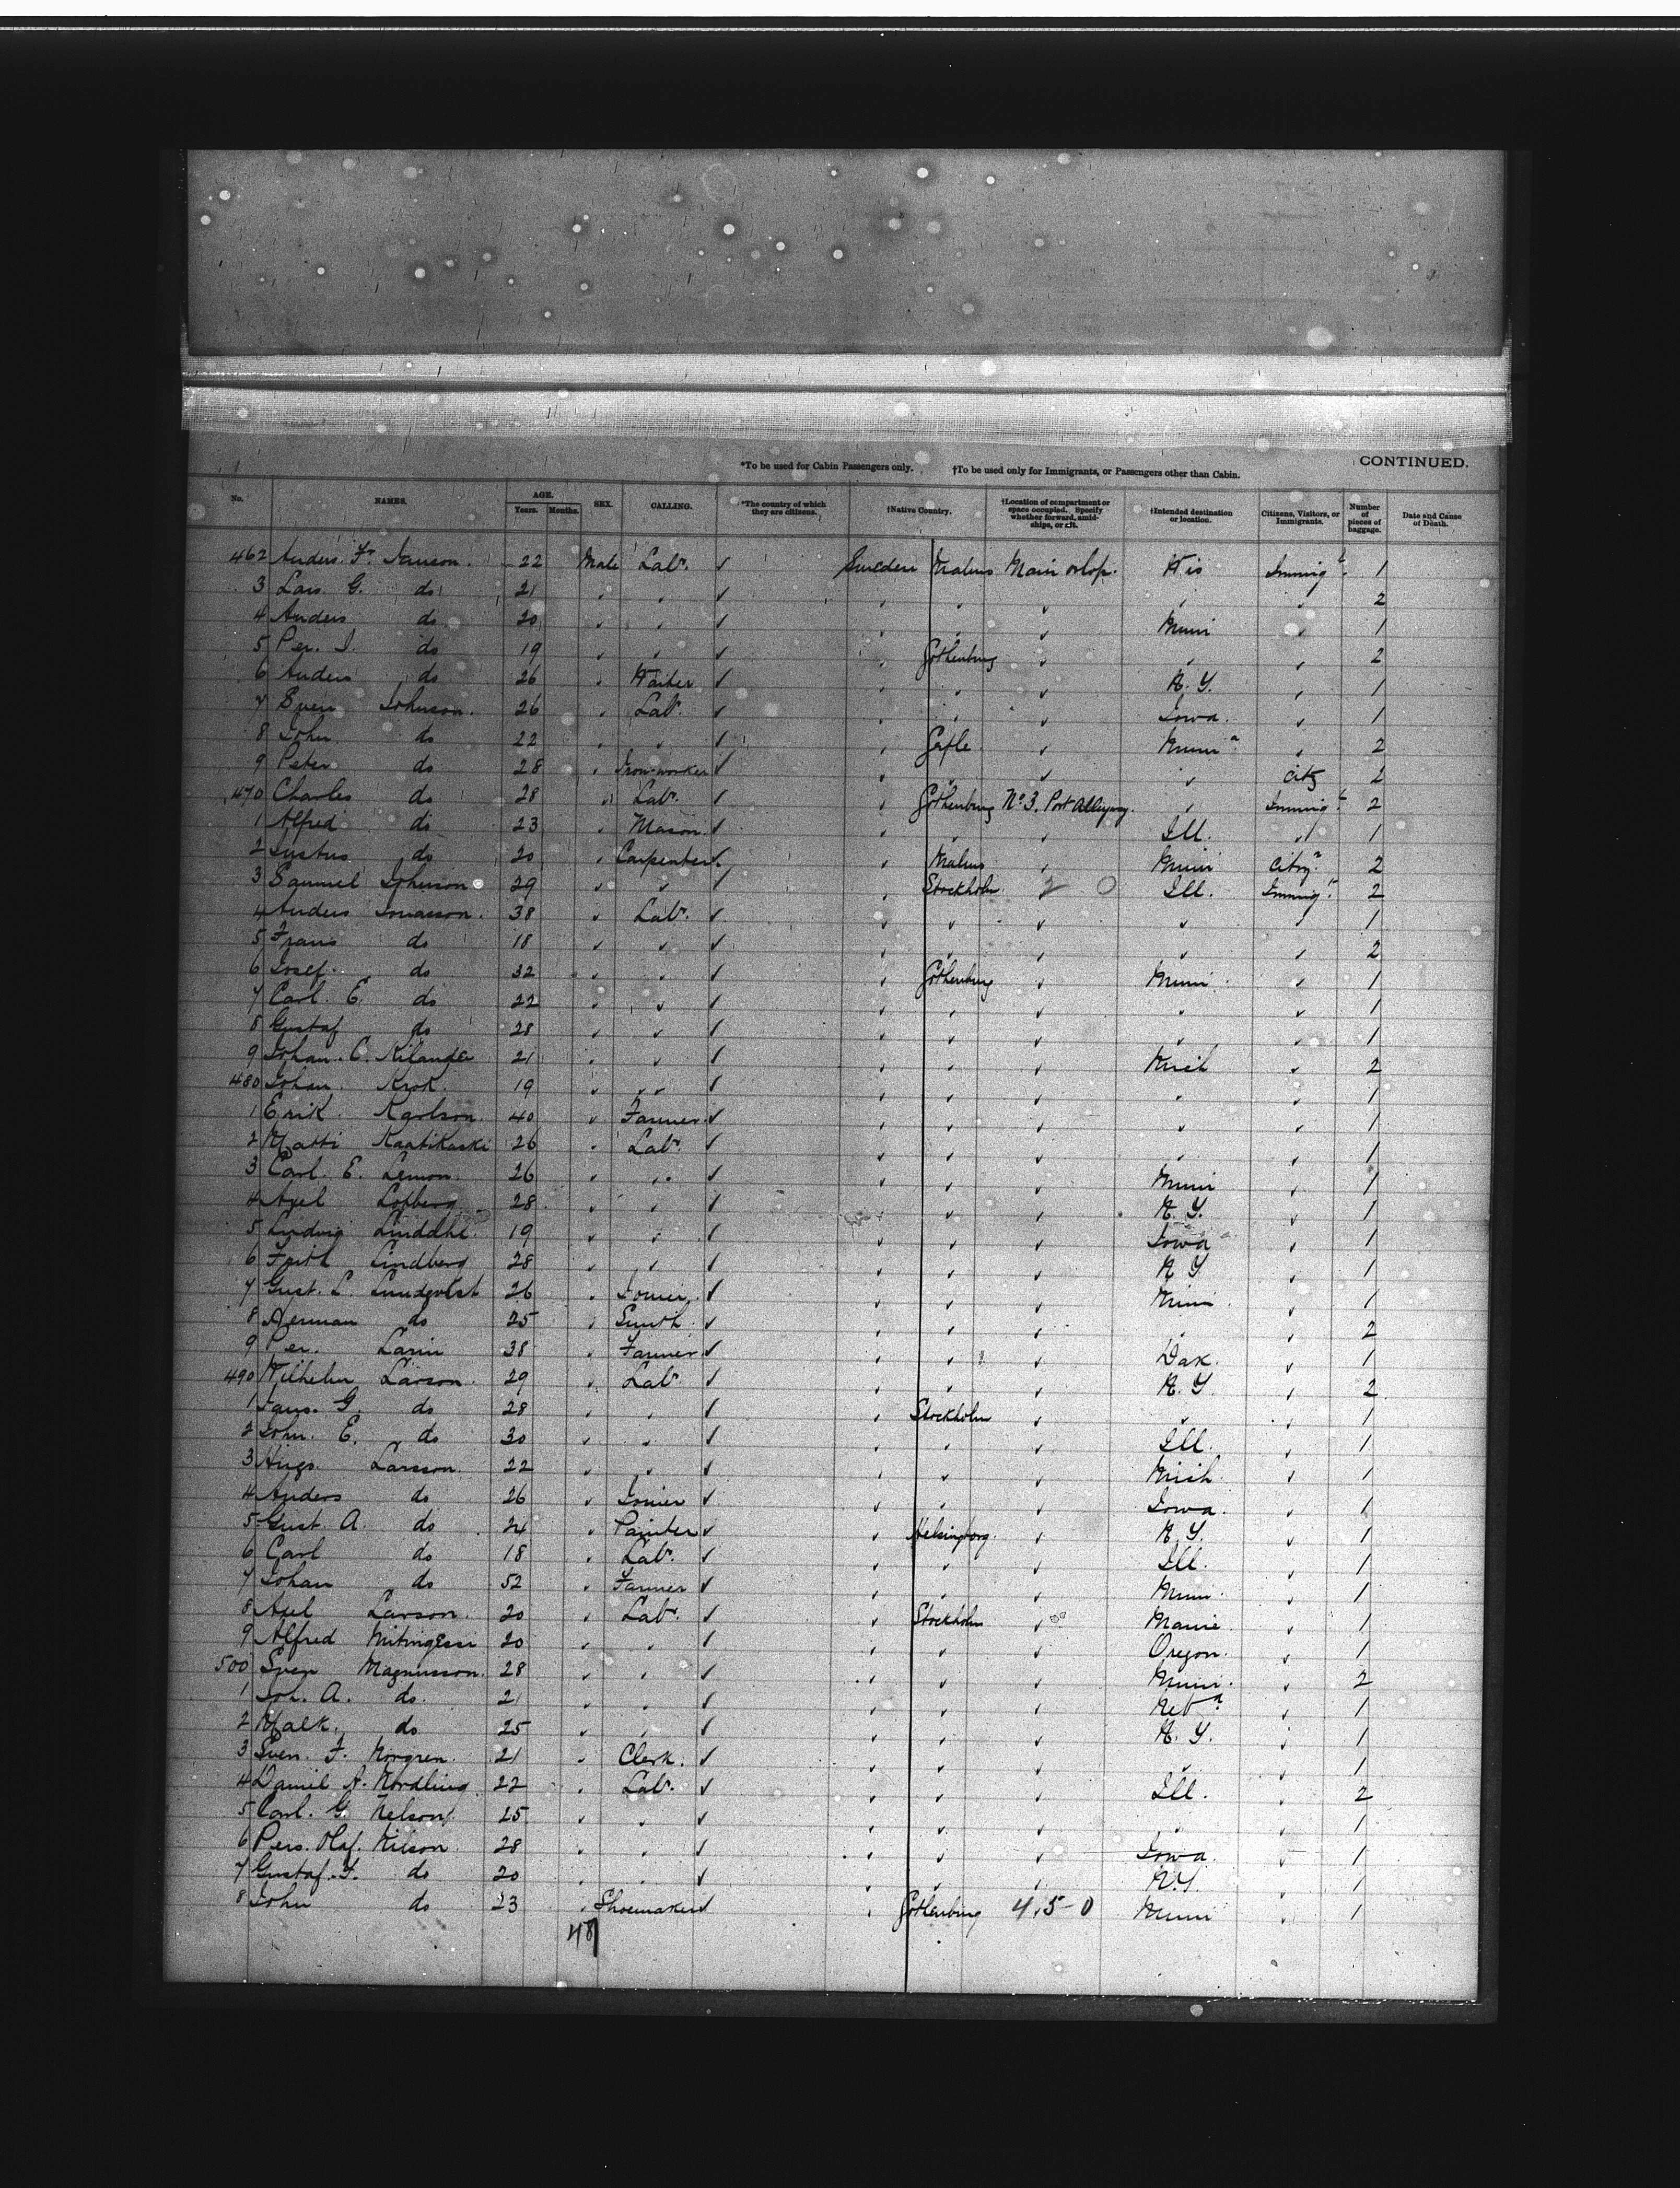 CONTINUED.
*To be used for Cabin Passengers only. †To be used only for Immigrants, or Passengers other than Cabin.
No. NAMES. AGE. Years. Months. SEX. CALLING. *The country of which they are citizens. †Native Country. †Location of compartment or space occupied. Specify whether forward, amidships, or aft. †Intended destination or location. Citizens, Visitors, or Immigrants. Number of pieces of baggage. Date and Cause of Death.
462 Anders. F. Janson. 22 Male Labr. ✓ Sweden Malmo Main orlop. Wis Immigt. 1
3 Lars G. do 21 ✓ 2
4 Anders do 20 ✓ Minn 1
5 Per. J. do 19 ✓ Gothenburg 2
6 Anders do 26 Waiter ✓ N.Y. 1
7 Sven Johnson. 26 Labr. ✓ Iowa. 1
8 John do 22 ✓ Gefle Minna 2
9 Peter do 28 Iron-worker ✓ Citz 2
470 Charles do 28 Labr. ✓ Gothenburg No 3. Port Alleyway. Immigt. 2
1 Alfred do 23 Mason ✓ Ill. 1
2 Justus do 20 Carpenter ✓ Malmo Minn Citzn 2
3 Samuel Johnson 29 ✓ Stockholm 2 0 Ill. Immigt. 2
4 Anders Jonasson. 38 Labr. ✓ 1
5 Frans do 18 ✓ 2
6 Josef. do 32 ✓ Gothenburg Minn 1
7 Carl. E. do 22 ✓ 1
8 Gustaf do 28 ✓ 1
9 Johan. C. Kilander 21 ✓ Mich 2
480 Johan. Krok. 19 ✓ 1
1 Erik. Karlson. 40 Farmer ✓ 1
2 Matti 26 Labr. ✓ 1
3 Carl. E. Lemon. 26 ✓ Minn 1
4 Axel Lofberg 28 ✓ N.Y. 1
5 Ludvig 19 ✓ Iowa 1
6 Lindberg 28 ✓ N Y 1
7 Gust. L. Lundqvist 26 Joiner. ✓ Minn 1
8 Herman do 25 Smith ✓ 2
9 Per. 38 Farmer ✓ Dak. 1
490 Wilhelm Larson. 29 Labr. ✓ N.Y 2
1 G. do 28 ✓ Stockholm 1
2 John. E. do 30 ✓ Ill. 1
3 Hugo. Larsson. 22 ✓ Mich. 1
4 Anders do 26 Joiner ✓ Iowa. 1
5 Gust. A. do 24 Painter ✓ Helsingborg. N.Y. 1
6 Carl do 18 Labr. ✓ Ill. 1
7 Johan do 52 Farmer ✓ Minn. 1
8 Axel Larson. 20 Labr. ✓ Stockholm Maine 1
9 Alfred 20 ✓ Oregon. 1
500 Sven Magnusson. 28 ✓ Minn. 2
1 Joh. A. do. 21 ✓ Neba 1
2 do 25 ✓ N.Y. 1
3 Sven. F. Norgren. 21 Clerk. ✓ 1
4 Daniel A. Nordling 22 Labr. ✓ Ill. 2
5 Carl. G. Nelson. 25 ✓ 1
6 Pers. Olof. Nilson. 28 ✓ Iowa 1
7 Gustaf. F. do 20 ✓ N.Y. 1
8 John do 23 Shoemaker ✓ Gothenburg 4,5-0 Minn 1
48